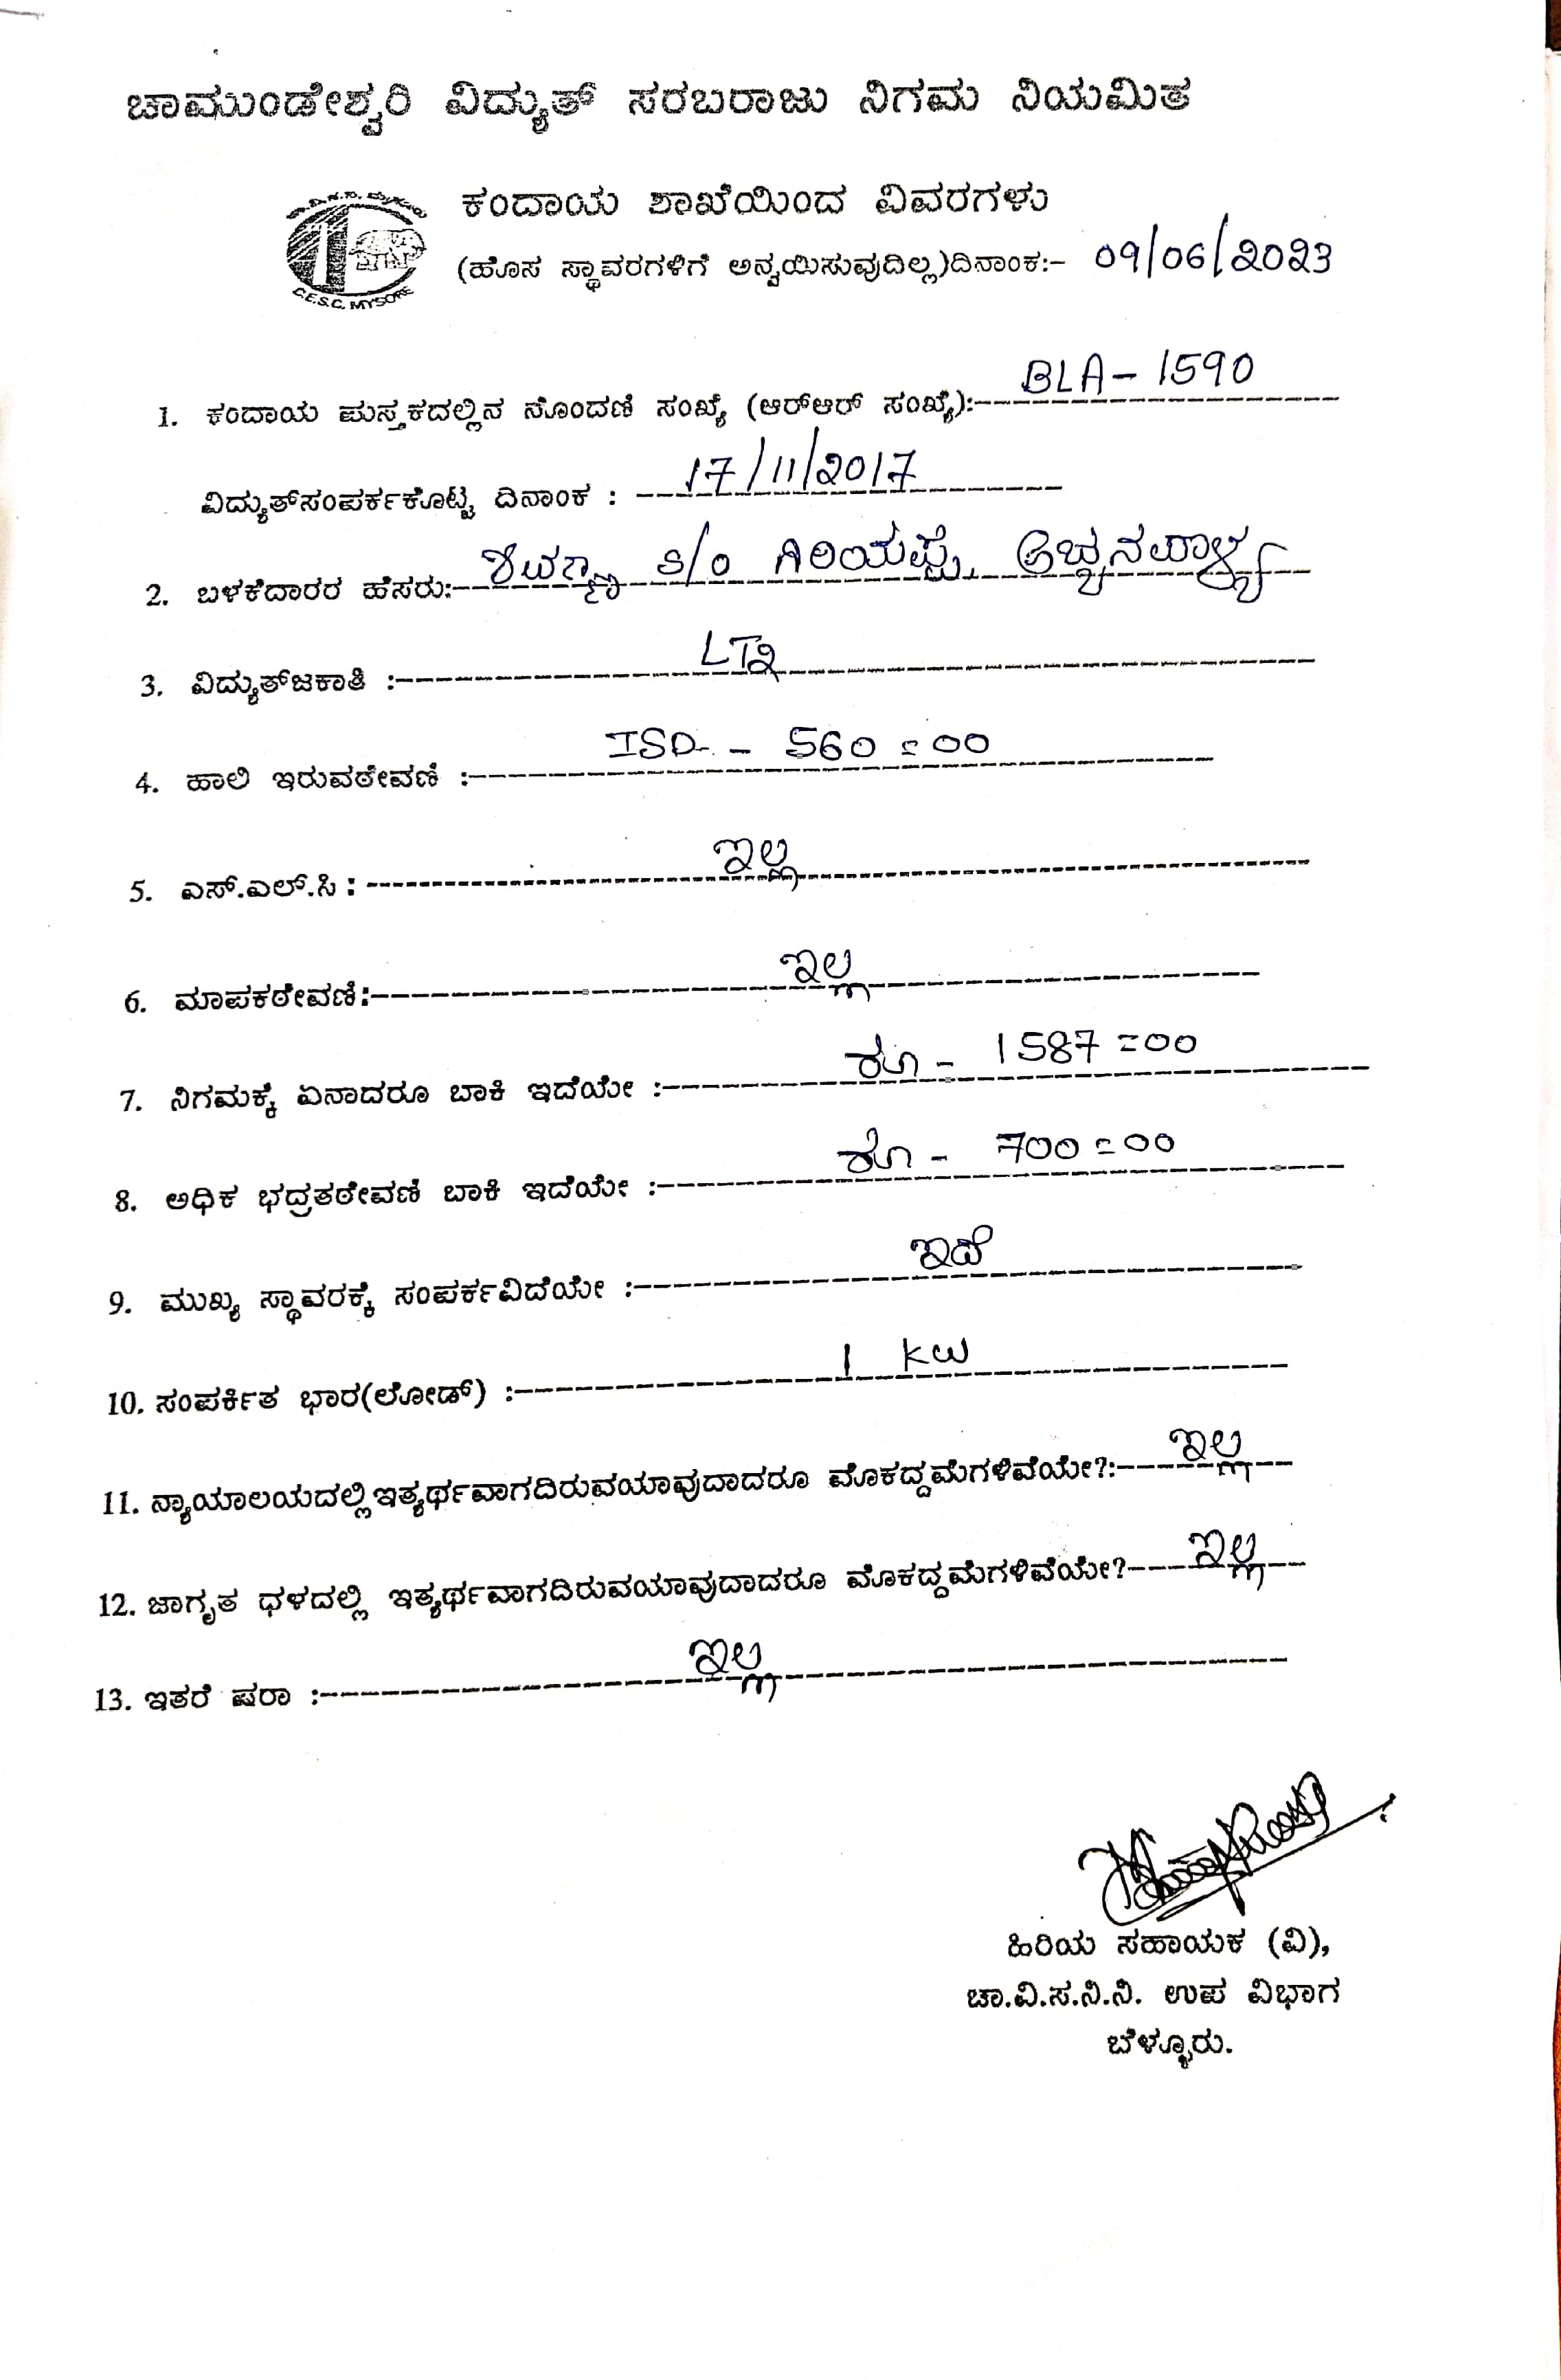 ಚಾಮುಂಡೇಶ್ವರಿ ವಿದ್ಯುತ್ ಸರಬರಾಜು ನಿಗಮ ನಿಯಮಿತ
ಕಂದಾಯ ಶಾಖೆಯಿಂದ ವಿವರಗಳು
(ಹೊಸ ಸ್ಥಾವರಗಳಿಗೆ ಅನ್ವಯಿಸುವುದಿಲ್ಲ)ದಿನಾಂಕ:- 09/06/2023
C.E.S.C. MYSORE
1. ಕಂದಾಯ ಪುಸ್ತಕದಲ್ಲಿನ ನೊಂದಣಿ ಸಂಖ್ಯೆ (ಆರ್‌ಆರ್ ಸಂಖ್ಯೆ):- BLA - 1590
ವಿದ್ಯುತ್‌ಸಂಪರ್ಕಕೊಟ್ಟ ದಿನಾಂಕ : 17/11/2017
2. ಬಳಕೆದಾರರ ಹೆಸರು:- S/O ಗಿರಿಯಪ್ಪ,
3. ವಿದ್ಯುತ್‌ಜಕಾತಿ :- LT2
4. ಹಾಲಿ ಇರುವಠೇವಣಿ :- ISD - 560=00
5. ಎಸ್.ಎಲ್.ಸಿ : ಇಲ್ಲ
6. ಮಾಪಕಠೇವಣಿ:- ಇಲ್ಲ
7. ನಿಗಮಕ್ಕೆ ಏನಾದರೂ ಬಾಕಿ ಇದೆಯೇ :- ರೂ - 1587=00
8. ಅಧಿಕ ಭದ್ರತಠೇವಣಿ ಬಾಕಿ ಇದೆಯೇ :- ರೂ - 700=00
9. ಮುಖ್ಯ ಸ್ಥಾವರಕ್ಕೆ ಸಂಪರ್ಕವಿದೆಯೇ :- ಇದೆ
10. ಸಂಪರ್ಕಿತ ಭಾರ(ಲೋಡ್) :- 1 KW
11. ನ್ಯಾಯಾಲಯದಲ್ಲಿಇತ್ಯರ್ಥವಾಗದಿರುವಯಾವುದಾದರೂ ಮೊಕದ್ದಮೆಗಳಿವೆಯೇ?:- ಇಲ್ಲ
12. ಜಾಗೃತ ಧಳದಲ್ಲಿ ಇತ್ಯರ್ಥವಾಗದಿರುವಯಾವುದಾದರೂ ಮೊಕದ್ದಮೆಗಳಿವೆಯೇ?- ಇಲ್ಲ
13. ಇತರೆ ಷರಾ :- ಇಲ್ಲ
ಹಿರಿಯ ಸಹಾಯಕ (ವಿ),
ಚಾ.ವಿ.ಸ.ನಿ.ನಿ. ಉಪ ವಿಭಾಗ
ಬೆಳ್ಳೂರು.